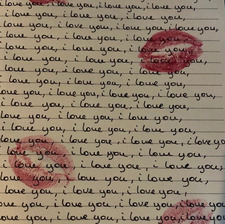 i love you, i love you, i love you,
i love you, i love you, i love you, i love you,
i love you, i love you, i love you, i love you
i love you, i love you, i love you, i love you,
i love you, i love you, i love you, i love you,
i love you, i love you, i love you, i love you,
i love you, i love you, i love you, i love you,
i love you, i love you, i love you, i love you,
i love you, i love you, i love you, i love you,
i love you, i love you, i love you, i love you,
i love you, i love you, i love you, i love you,
i love you, i love you, i love you, i love you
i love you, i love you, i love you,
love you, i love you, i love you,
love you, i love you, i love you, i love you,
i love you, i love you, i love you,
love you, i love you, i love you,
you, i love you, i love you, i love you,